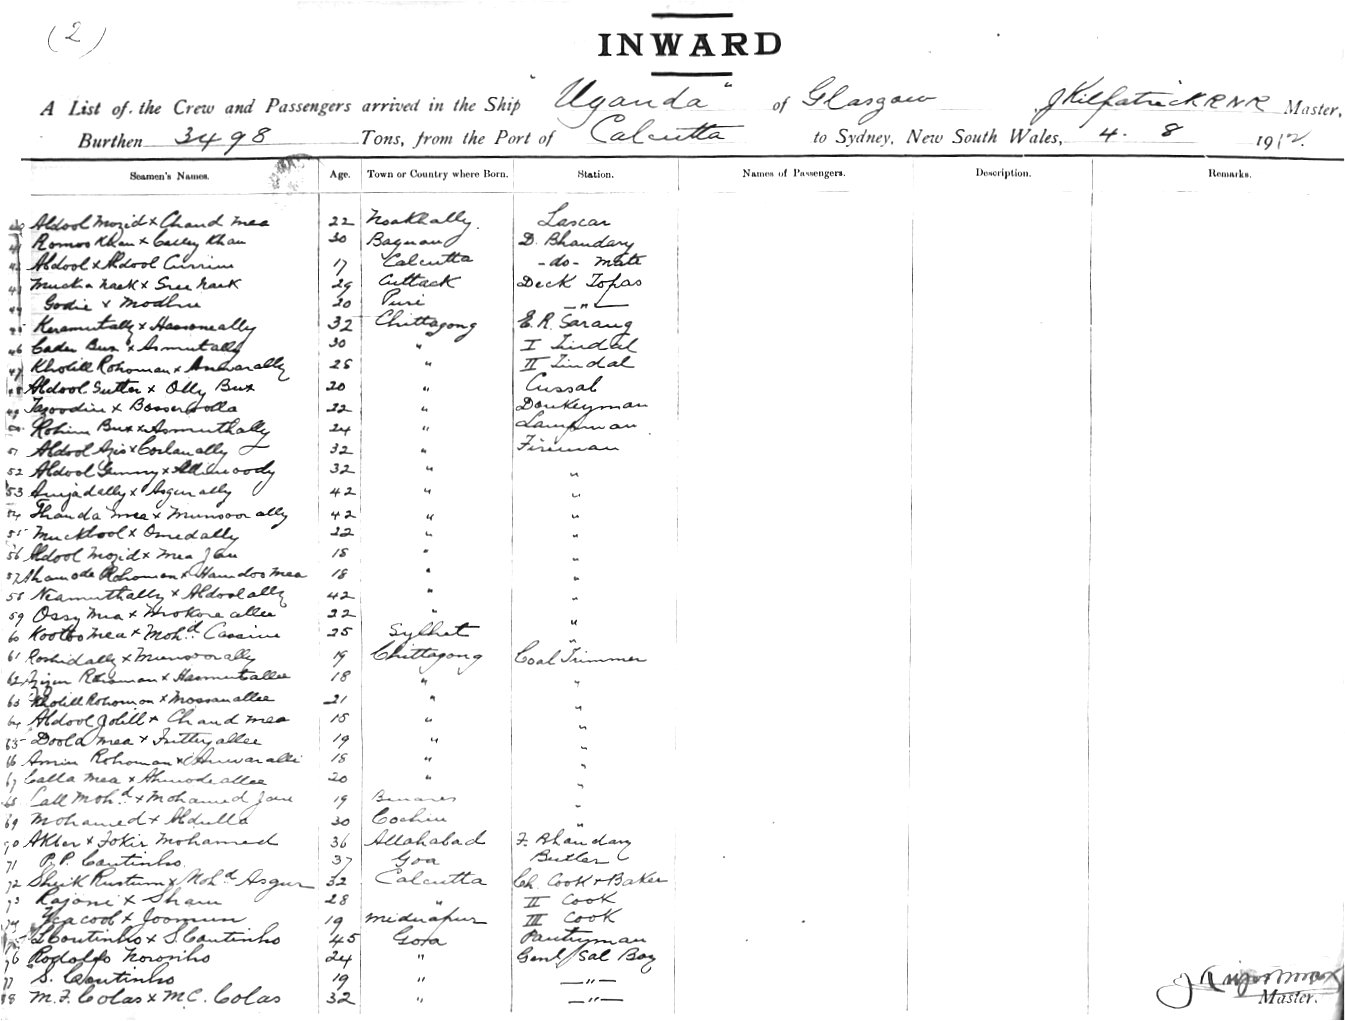 (2)
INWARD
A List of the Crew and Passengers arrived in the Ship "Uganda" of Glasgow J Kilpatrick R N R Master,
Burthen 3498 Tons, from the Port of Calcutta to Sydney, New South Wales, 4. 8 1912.
Seamen's Names. Age. Town or Country where Born. Station. Names of Passengers. Description. Remarks.
Abdool Mozid x Chand Mea 22 Noakhally. Lascar
Romos Khan x Calley Khan 30 D. Bhandary
Abdool x Abdool Currim 17 Calcutta -do- Mate
Naek x Sree Naek 29 Cuttack Deck Topas
Godie x Modhu 20 Puri — " —
45 Keramutally x Hassoneally 32 Chittagong E. R. Sarang
46 Cader Bux x Asmutally 30 " I Tindal
47 Kholill Rohoman x Anwarally 25 " II Tindal
48 Abdool Suttar x Olly Bux 20 " Cussab
49 Tazoodin x 22 " Donkeyman
50 Rohim Bux x Asmuthally 24 " Lampman
51 Abdool Azis x 32 " Fireman
52 Abdool Gunny x 32 " "
53 Amjadally x Asgurally 42 " "
54 Thanda Mea x Munsoorally 42 " "
55 Muckbool x Omedally 22 " "
56 Abdool Mozid x Mea Jan 18 " "
57 Ahamode Rohoman x Hamdoo Mea 18 " "
58 Neamuthally x Abdoolally 42 " "
59 Ossy Mea x 22 " "
60 Kootoo Mea x Mohd Cassim 25 Sylhet "
61 Roshidally x Munsoorally 19 Chittagong Coal Trimmer
62 Azizur Rohoman x Hasmutallee 18 " "
63 Kholill Rohoman x Mossanallee 21 " "
64 Abdool Jolill x Chand Mea 18 " "
65 Doola Mea x Futteyallee 19 " "
66 Amin Rohoman x Anwaralli 18 " "
67 Calla Mea x Ahmodeallee 20 " "
68 Lall Mohd x Mohamed Jan 19 Benares "
69 Mohamed x Abdulla 30 Cochin "
70 Akber x Fokir Mohamed 36 Allahabad F. Bhandary
71 P. P. Coutinho 37 Goa Butler
72 Sheik Rustum x Mohd Asgur 32 Calcutta Ch. Cook + Baker
73 Rajoni x Sham 28 " II Cook
74 Yeacoob x Joomun 19 Midnapur III Cook
75 Coutinho x S. Coutinho 45 Goa Pantryman
76 Rodolfo Noronho 24 " Genl/Sal Boy
77 S. Coutinho 19 " — " —
78 M. F. Colas x M C. Colas 32 " — " —
Master.